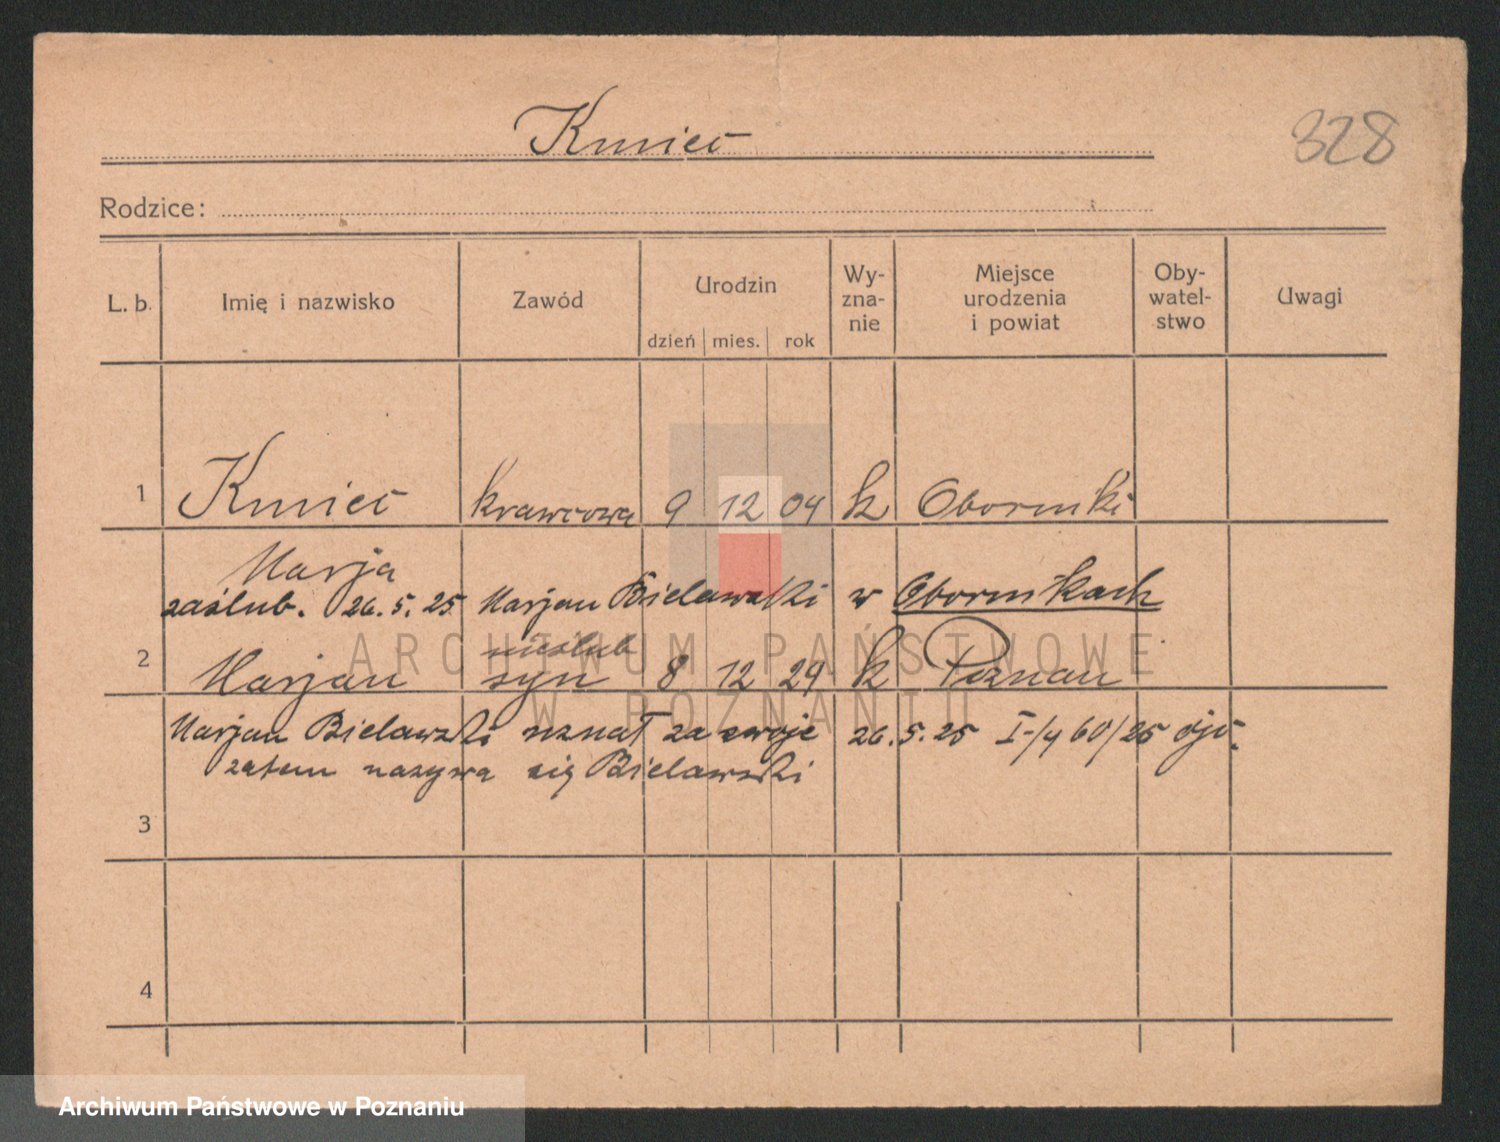 Kmieć
328
Rodzice:
L. b. Imię i nazwisko Zawód Urodzin dzień mies. rok Wy-zna-nie Miejsce urodzenia i powiat Oby-watel-stwo Uwagi
1 Kmieć krawcowa 9 12 04 k Oborniki
Marja
zaślub. 26.5.25 Marjan Bielawski w Obornikach
nieślub
2 Marjan syn 8 12 24 k Poznań
Marjan Bielawski uznał za swoje 26.5.25 I-/4 60/25
zatem nazywa się Bielawski
3
4
ARCHIWUM PAŃSTWOWE
W POZNANIU
Archiwum Państwowe w Poznaniu